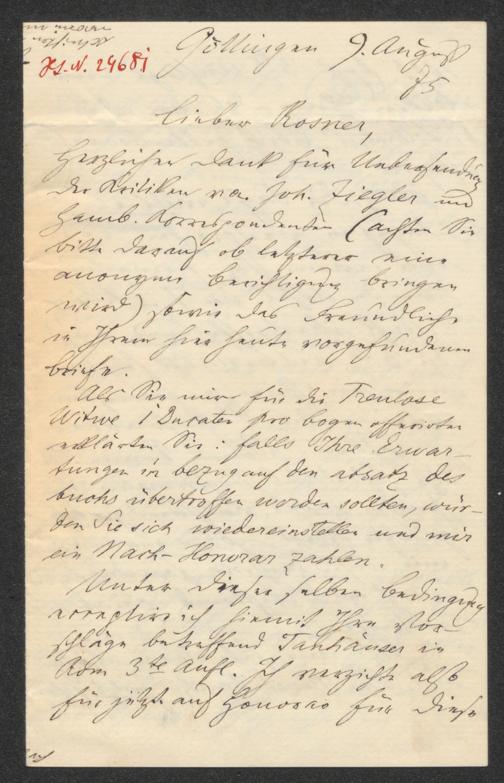 H.I.N. 24681
Göttingen 9. August
75
Lieber Rosner,
Herzlichen Dank für Uebersendung
der Kritiken von Joh. Ziegler und
Hamb. Korrespondenten (achten Sie
bitte darauf ob letzterer eine
anonyme Berichtigung bringen
wird) sowie das Freundliche
in Ihrem hier heute vorgefundenen
Briefe.
Als Sie mir für die Treulose
Witwe 1 Ducaten pro bogen offerirten
erklärten Sie: falls Ihre Erwar-
tungen in bezug auf den absatz des
buchs übertroffen werden sollten, wür-
den Sie sich wiedereinstellen und mir
ein Nach-Honorar zahlen.
Unter dieser selben bedingung
acceptire ich hiemit Ihre Vor-
schläge betreffend Tanhäuser in
Rom 3te Aufl. Ich verzichte also
für jetzt auf Honorar für diese